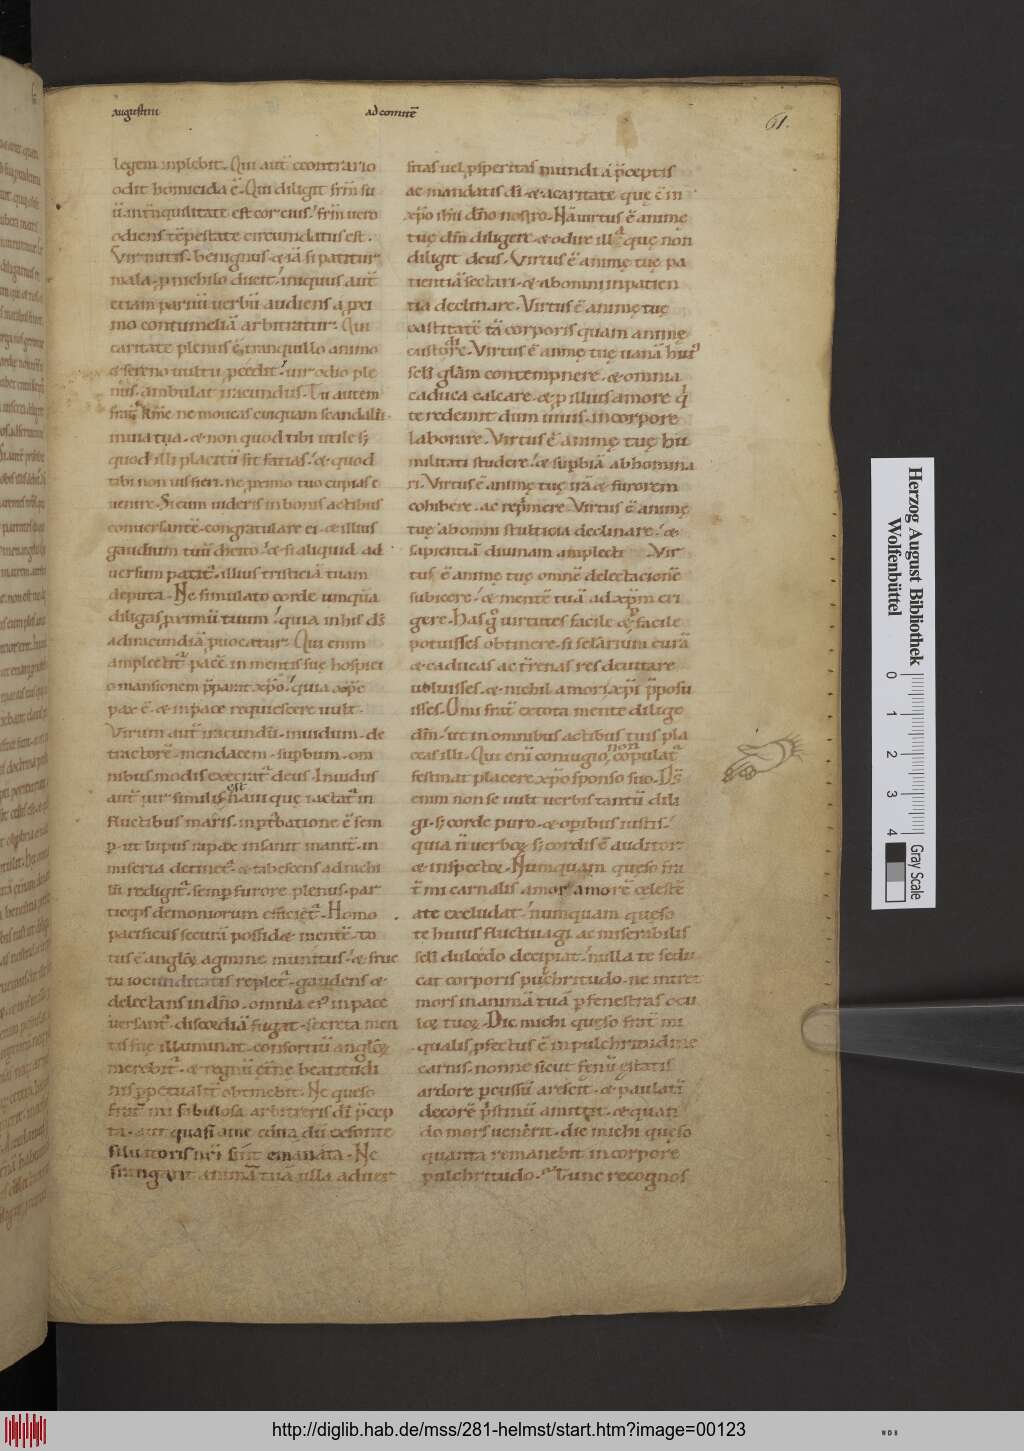 augustini ad comitē
61.
legem inplebit. Qui aut̄ econtrario
odit homicida ē. Qui diligit frm̄ su
ū. in trāquilitate est cor eius. frm̄ uero
odiens tēpestate circumdatus est.
Vir mitis. benignus & iā si patitur
mala, p nichilo ducit. iniquus aut̄
etiam paruū uerbū audiens a pxi
mo contumeliā arbitratur. Qui
caritate plenus ē, tranquillo animo
& sereno uultu pcedit. uir odio ple
nus. ambulat iracundus. Tu autem
ne moueas cuiquam scandalū.
in uia tua. & non quod tibi utile s;
quod illi placitū sit facias. & quod
tibi non uis fieri. ne proximo tuo cupias e
uenire. Si cum uideris in bonis actibus
conuersantē. congratulare ei. & illius
gaudium tuū dicito. & si aliquid ad
uersum patit̄. illius tristiciā tuam
deputa. Ne simulato corde umquā
diligas proximū tuum. quia in his ds̄
ad iracundiā puocatur. Qui enim
amplectit̄ pacē in mentis sue hospici
o mansionem pparat xp̄o. quia xp̄c
pax ē. & in pace requiescere uult.
Virum aut̄ iracundū. inuidum. de
tractorē. mendacem. supbum. om
nibus modis execrat̄ deus. Inuidus
aut̄ uir similis est naui que iactat̄ in
fluctibus maris. in pt̄batione ē sem
p. ut lupus rapax insanit manit̄. in
miseria detinet̄. & tabescens ad nichi
lū redigit̄. semp furore plenus. par
ticeps demoniorum efficiet̄. Homo
pacificus securā possidet mentē. to
tus ē angloꝝ agmine munitus. & fruc
tu iocunditatis replet̄. gaudens &
delectans in dn̄o. omnia ei in pace
uersant̄. discordiā fugat. secreta men
tis sue illuminat. consortiū angloꝝ
merebit̄. & regnū et̄ne beatitudi
nis ppetualit̄ obtinebit. Ne queso
frat̄ mi fabulosa arbitreris di pcep
ta. aut quasi aine
saluatoris nr̄i sint emanata. Ne
frangant animā tuā ulla aduer
sitas uel psperitas mundi a pceptis
ac mandatis di & a caritate que ē in
xp̄o ihū dn̄o nostro. Nā uirtus ē anime
tue dn̄m diligere. & odire illa que non
diligit deus. Virtus ē anime tue pa
tientiā sectari. & ab omni inpatien
tia declinare. Virtus ē anime tue
castitatē tā corporis quam anime
custodire. Virtus ē anime tue uanā hui9
seli glām contempnere. & omnia
caduca calcare. & p illius amore q
te redemit dum uiuis. in corpore
laborare. Virtus ē anime tue hu
militati studere. & supbiā abhomina
ri. Virtus ē anime tue irā & furorem
cohibere. ac reprimere. Virtus ē anime
tue ab omni stulticia declinare. &
sapientiā diuinam amplecti. Vir
tus ē anime tue omnē delectacionē
subicere. & mentē tuā ad xp̄m eri
gere. Has g uirtutes facile & pfacile
potuisses obtinere. si selariū curā
& caducas ac t̄renas res deuitare
uoluisses. & nichil amori xp̄i pposu
isses. O mi frat̄ ex tota mente dilige
dn̄m. ut in omnibus actibus tuis pla
ceas illi. Qui enī coniugio non copulat̄
festinat placere xp̄o sponso suo. Ds̄
enim non se uult uerbis tantū dili
gi. s; corde puro. & opibus iustis.
quia n̄ uerboꝝ s; cordis ē auditor
& inspector. Numquam queso fra
t̄ mi carnalis amor amorē celestē
a te excludat. numquam queso
te huius fluctiuagi ac miserabilis
seli dulcedo decipiat. nulla te sedu
cat corporis pulchritudo. ne intret
mors in animā tuā p fenestras ocu
loꝝ tuoꝝ. Dic michi queso frat̄ mi
qualis pfectus ē in pulchritudine
carnis. nonne sicut fenū estatis
ardore pcussū arescit. & paulatī
decorē pstinū amittit. & quan
do mors uenerit. dic michi queso
quanta remanebit in corpore
pulchritudo. Tunc recognos
Herzog August Bibliothek
Wolfenbüttel
0 1 2 3 4
Gray Scale
http://diglib.hab.de/mss/281-helmst/start.htm?image=00123